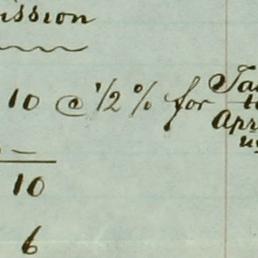 ission
10 @ 1/2 % for Ja
to
Apr
10
6